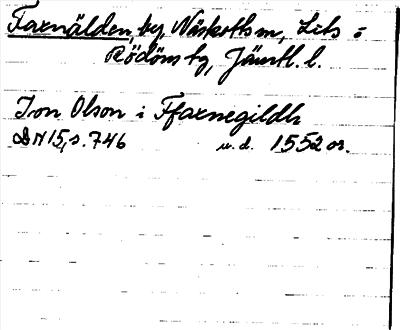 Faxnälden, by, Näskotts sn, Lits o
Rödöns tg, Jämtl. l.
Jon Olson i Ffaxnegildh
DN 15, s. 746 u. d. 1552 or.